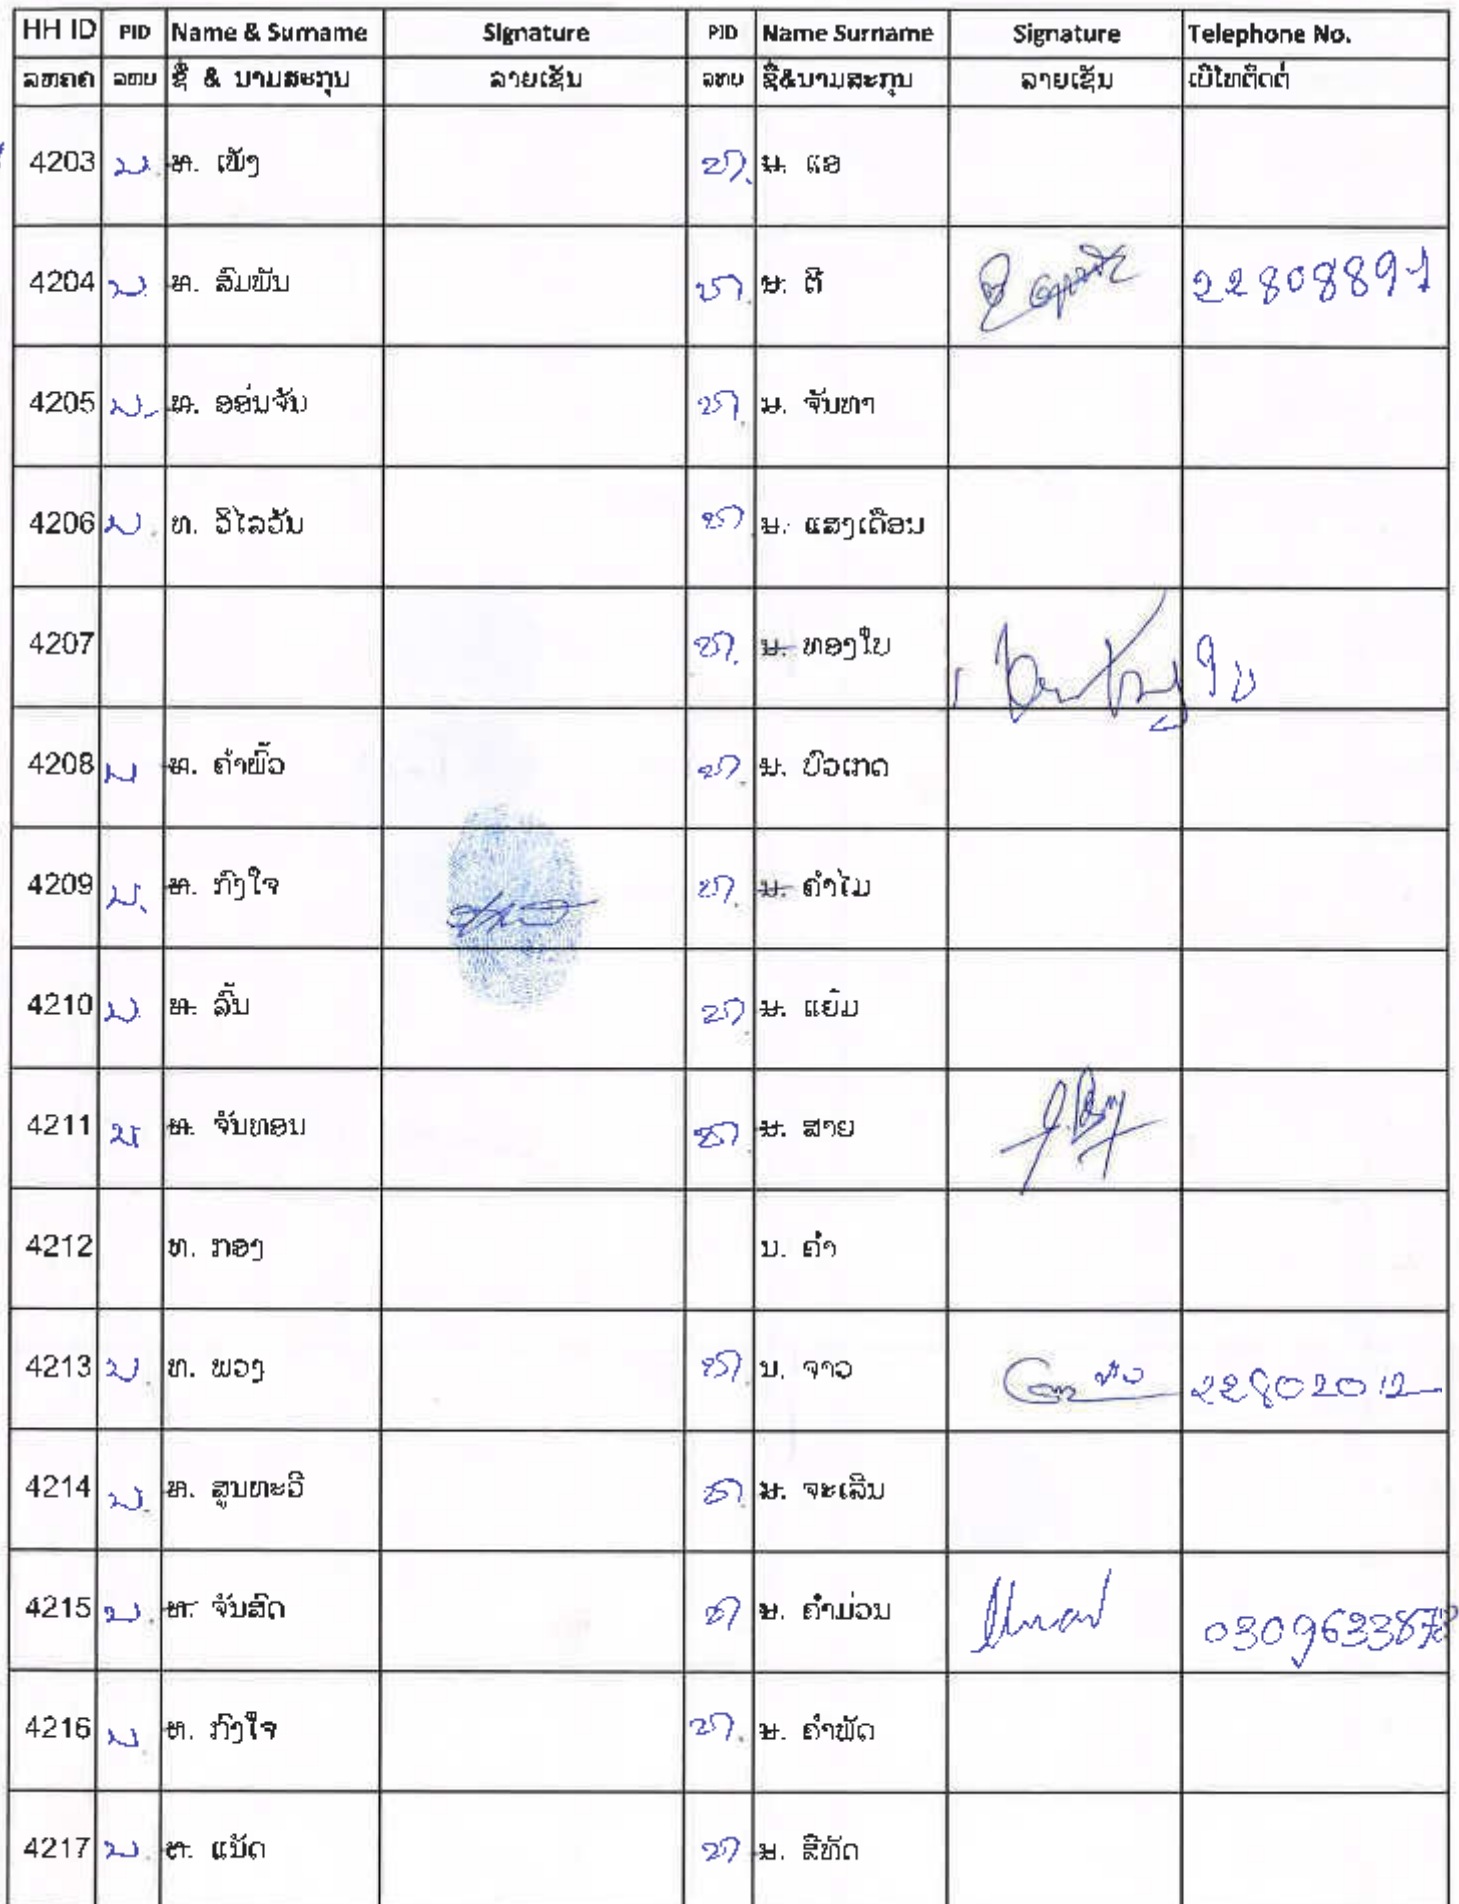 HH ID PID Name & Surname Signature PID Name Surname Signature Telephone No.
ລຫຄຄ ລຫບ ຊື່ & ນາມສະກຸນ ລາຍເຊັນ ລຫບ ຊື່&ນາມສະກຸນ ລາຍເຊັນ ເບີໂທຕິດຕໍ່
4203 ທ. ເພັງ ນ. ແອ
4204 ທ. ສົມພັນ ນ. ຕີ 22808891
4205 ທ. ອອ່ນຈັນ ນ. ຈັນທາ
4206 ທ. ວິໄລວັນ ນ. ແສງເດືອນ
4207 ນ. ທອງໃບ
4208 ທ. ຄຳພິ້ວ ນ. ບົວເກດ
4209 ທ. ກົງໃຈ ນ. ຄຳໄມ
4210 ທ. ລົ້ນ ນ. ແຍ້ມ
4211 ທ. ຈັນທອນ ນ. ສາຍ
4212 ທ. ກອງ ນ. ຄຳ
4213 ທ. ພວງ ນ. ຈາວ 22802012
4214 ທ. ສູນທະວີ ນ. ຈະເລີນ
4215 ທ. ຈັນສົດ ນ. ຄຳມ່ວນ 0309633878
4216 ທ. ກົງໃຈ ນ. ຄຳພັດ
4217 ທ. ແນັດ ນ. ສີທັດ